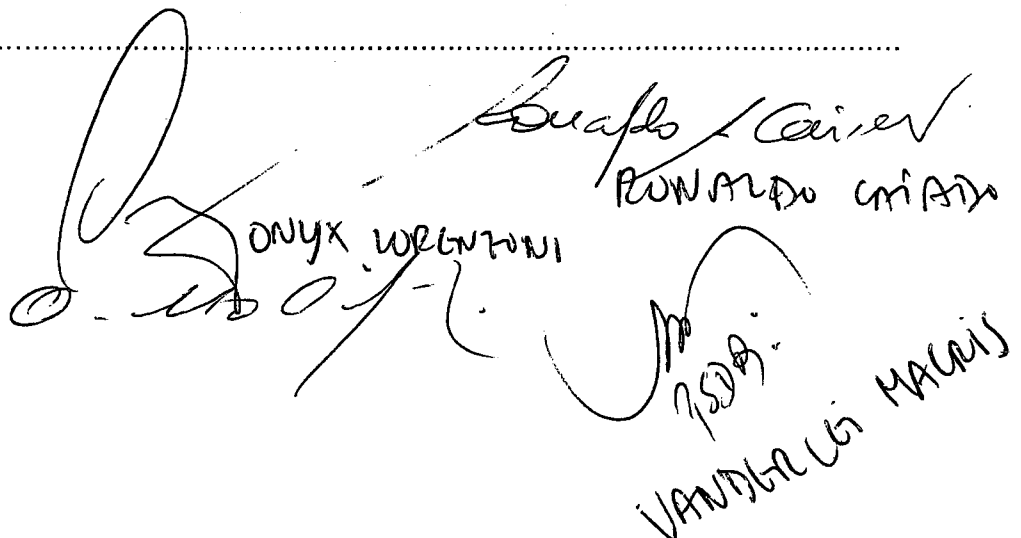 Ronaldo Caiado
RONALDO CAIADO
ONYX LORENZONI
PSDB.
VANDERLEI MACRIS